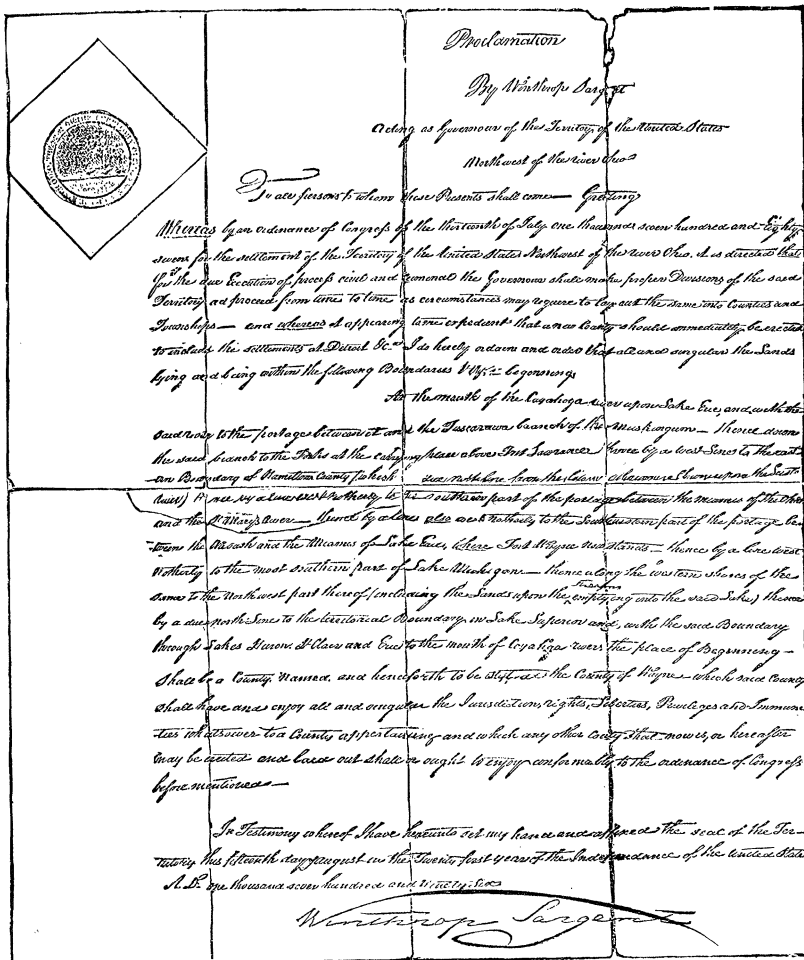 Proclamation
By Winthrop Sargent
Acting as Governour of the Territory of the United States
Northwest of the river Ohio
To all persons to whom these Presents shall come — Greeting
Whereas by an ordinance of Congress of the thirteenth of July one thousand seven hundred and Eighty
seven for the settlement of the Territory of the United States Northwest of the river Ohio. it is directed that
for the due Execution of process civil and criminal the Governour shall make proper Divisions of the said
Territory and proceed from time to time as circumstances may require to lay out the same into Counties and
Townships — and whereas it appearing to me expedient that a new County should immediately be erected
to include the settlements at Detroit &c. I do hereby ordain and order that all and singular the Lands
lying and being within the following Boundaries Vizt. beginning
At the mouth of the Cayahoga river upon Lake Erie, and with the
said river to the portage between it and the Tuscarawa branch of the Muskingum — thence down
the said branch to the Forks at the carrying place above Fort Lawrance thence by a west Line to the east-
ern Boundary of Hamilton County (which is a due north line from the lower Shawnese town upon the Sciota
river) thence by a line west northerly to the southern part of the portage between the miamis of the Ohio
and the St Mary's river — thence by a line also west northerly to the Southwestern part of the portage be-
tween the Wabash and the Miamis of Lake Erie, where Fort Wayne now stands — thence by a line west
northerly to the most southern part of Lake Michigan — thence along the western shores of the
same to the Northwest part thereof (including the Lands upon the streams emptying into the said Lake) thence
by a due north Line to the territorial Boundary in Lake Superior and, with the said Boundary
through Lakes Huron. St Clair and Erie to the mouth of Cayahoga river the place of Beginning —
Shall be a County. Named, and henceforth to be styled the County of Wayne — which said County
shall have and enjoy all and singular the Jurisdiction, rights, Liberties, Privileges and Immuni
ties whatsoever to a County appertaining and which any other County that now is, or hereafter
may be erected and laid out shall or ought to enjoy conformably to the ordinance of Congress
before mentioned —
In Testimony whereof I have hereunto set my hand and affixed the seal of the Ter-
ritory this fifteenth day august in the Twenty first year of the Independance of the United States
A.D. one thousand seven hundred and Ninety Six
Winthrop Sargent